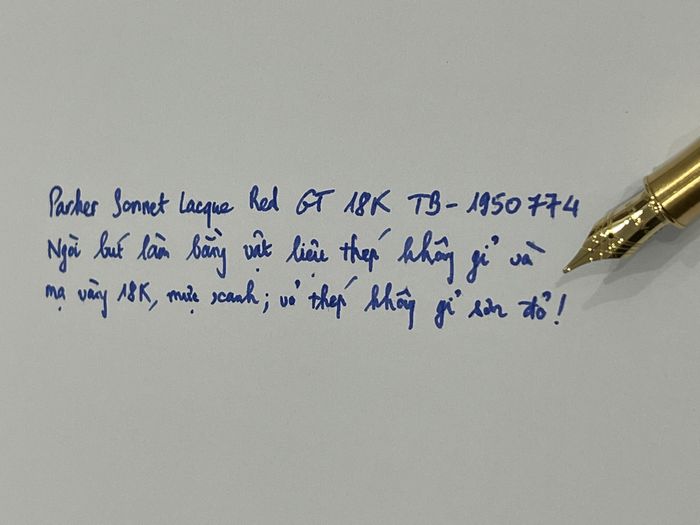 Parker Sonnet Lacque Red GT 18K TB-1950774
Ngòi bút làm bằng vật liệu thép không gỉ và
mạ vàng 18K, mực xanh; vỏ thép không gỉ sơn đỏ!